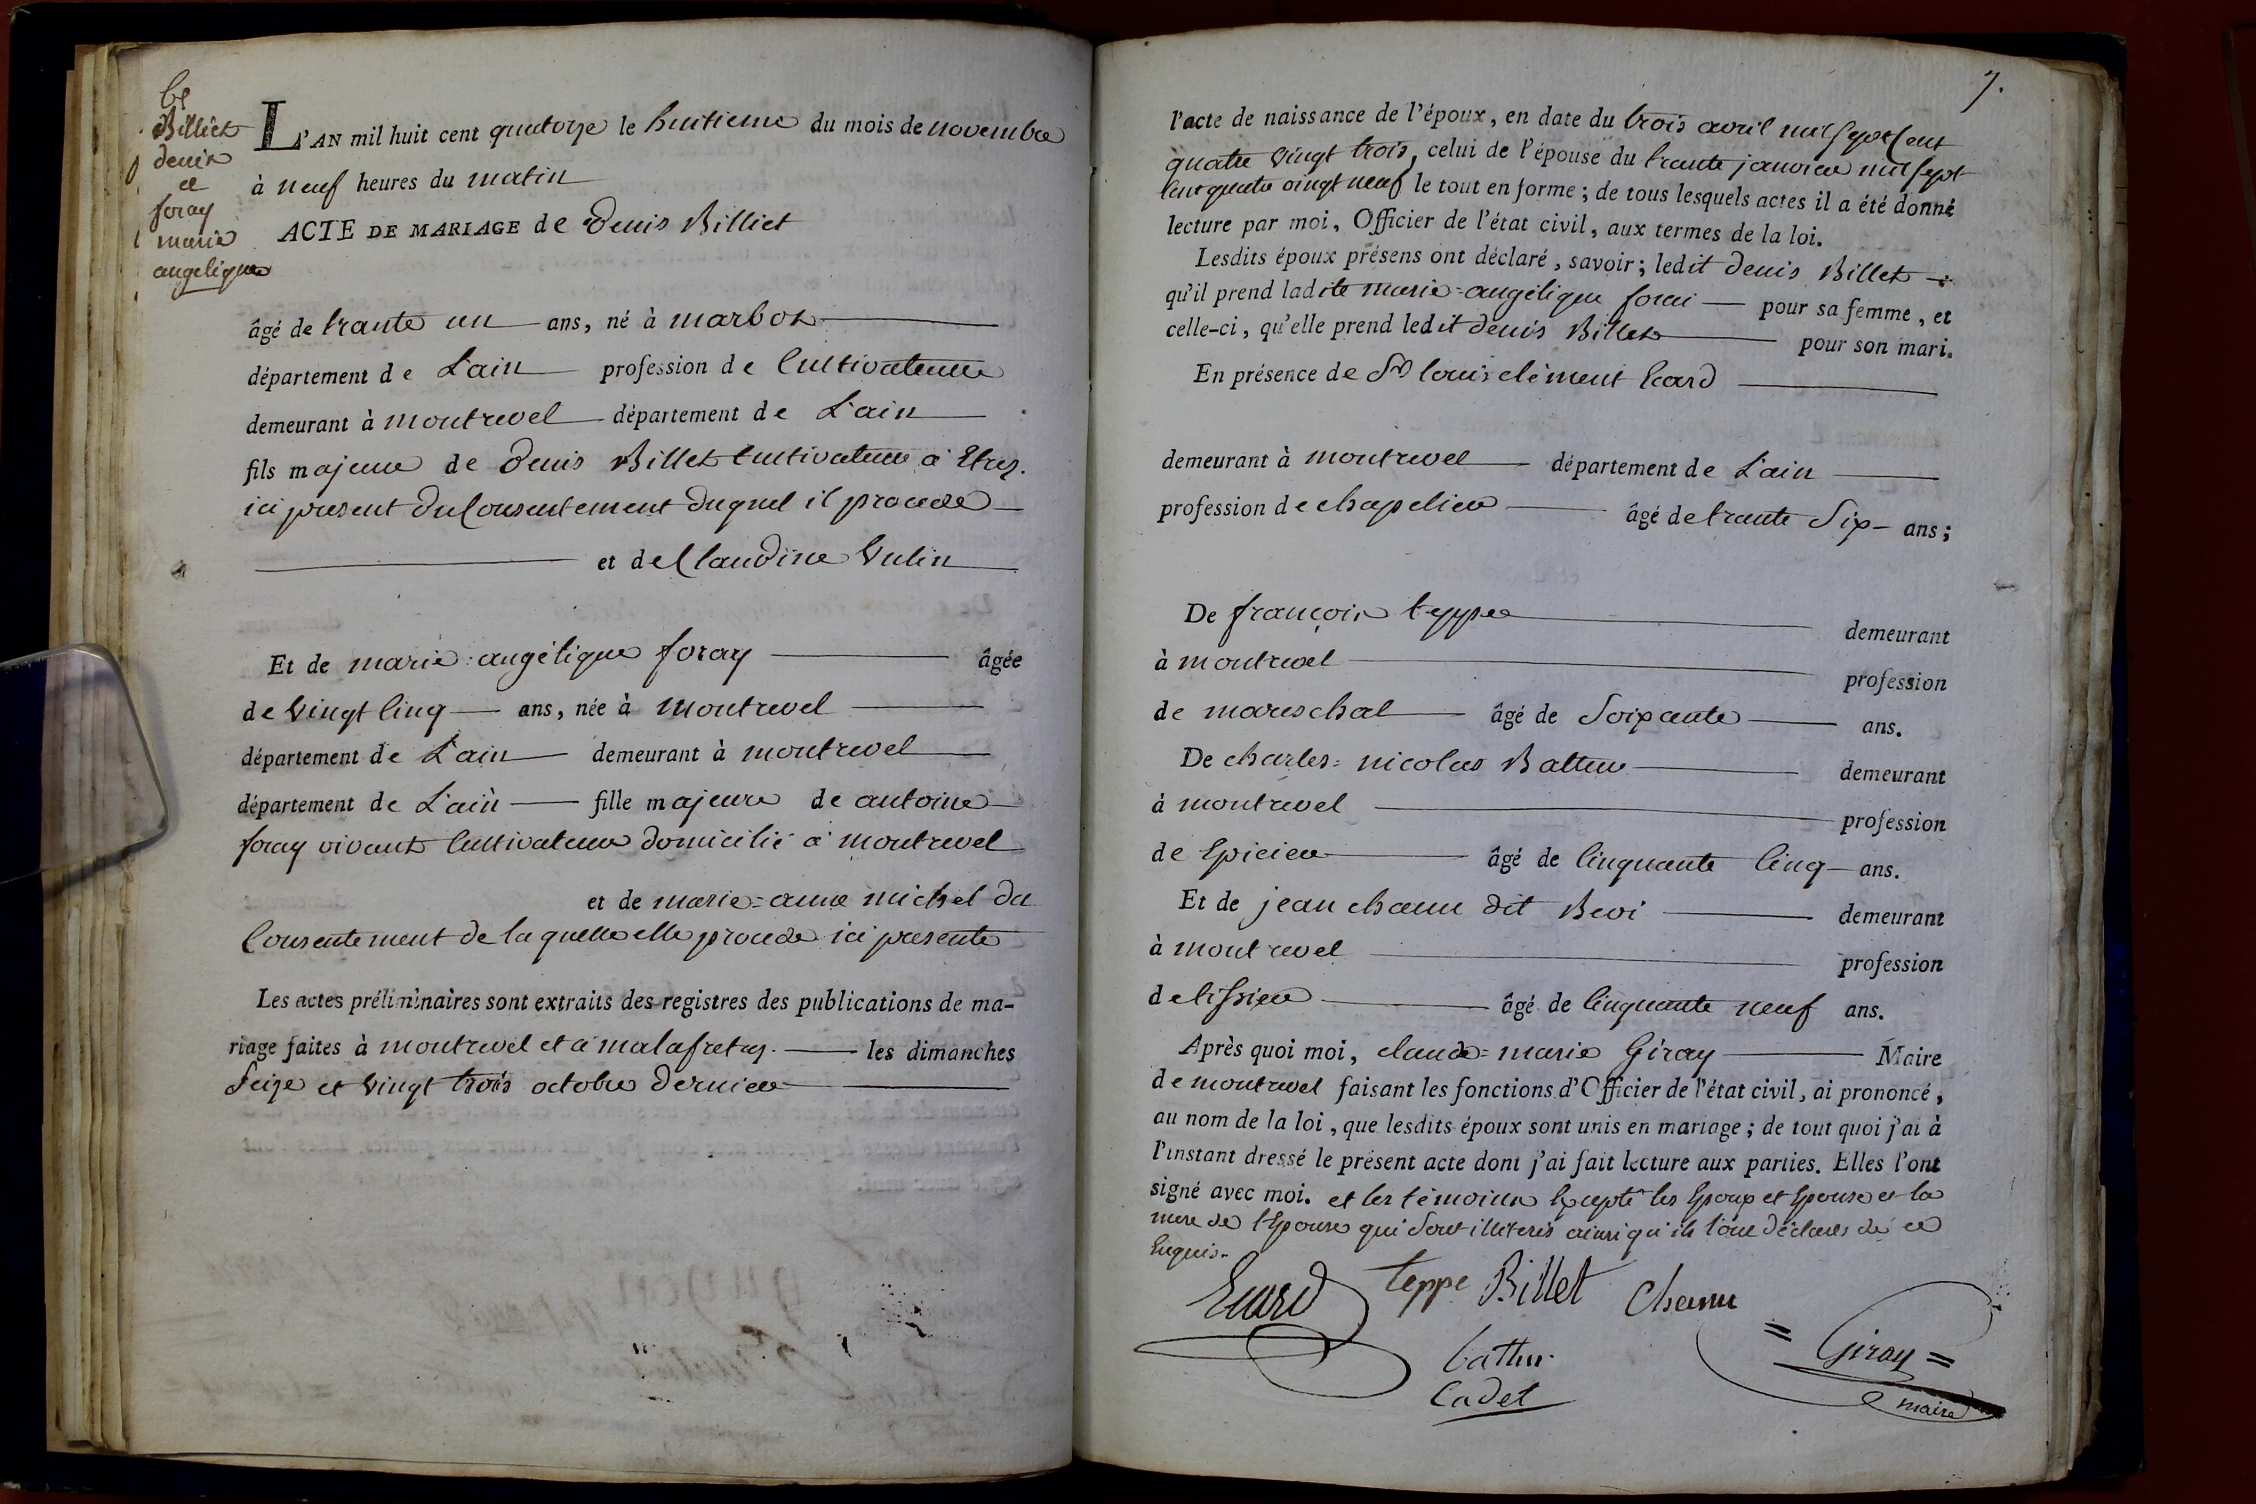 Billiet
denis
et
foray
marie
angelique
L'AN mil huit cent quatorze le huitieme du mois de novembre
à neuf heures du matin
ACTE DE MARIAGE de Denis Billiet
âgé de trante un ans, né à marboz
département de L'ain profession de Cultivateur
demeurant à montrevel département de L'ain
fils majeur de Denis Billet Cultivateur à Etrez.
ici present du Consentement duquel il procede
et de Claudine Vulin
Et de marie=angélique foray âgée
de vingt cinq ans, née à montrevel
département de L'ain demeurant à montrevel
département de L'ain fille majeure de antoine
foray vivant Cultivateur domicilié à montrevel
et de marie=anne michel du
Consentement de laquelle elle procede ici presente
Les actes préliminaires sont extraits des registres des publications de ma-
riage faites à montrevel et à malafretaz. les dimanches
Seize et vingt trois octobre dernier
7.
l'acte de naissance de l'époux, en date du trois avril mil sept Cent
quatre vingt trois, celui de l'épouse du trante janvier mil sept
Cent quatre vingt neuf le tout en forme; de tous lesquels actes il a été donné
lecture par moi, Officier de l'état civil, aux termes de la loi.
Lesdits époux présens ont déclaré, savoir; ledit denis Billet
qu'il prend ladite marie=angélique forai pour sa femme, et
celle-ci, qu'elle prend ledit denis Billet pour son mari.
En présence de Sr louis clément Ecard
demeurant à montrevel département de L'ain
profession de chapelier âgé de trante Six ans;
De françois teppe demeurant
à montrevel profession
de mareschal âgé de Soixante ans.
De charles=nicolas Battur demeurant
à montrevel profession
de Epicier âgé de Cinquante Cinq ans.
Et de jean chanu dit demeurant
à montrevel profession
de tissier âgé de Cinquante neuf ans.
Après quoi moi, claude=marie Giray Maire
de montrevel faisant les fonctions d'Officier de l'état civil, ai prononcé,
au nom de la loi, que lesdits époux sont unis en mariage; de tout quoi j'ai à
l'instant dressé le présent acte dont j'ai fait lecture aux parties. Elles l'ont
signé avec moi. et les témoins Excepté les Epoux et Epouse et la
mere de l'Epouse qui sont illiterés ainsi qu'ils l'ont déclarés de ce
Enquis.
Ecard teppe Billet Chanu
= Giray =
battur
Cadet
maire